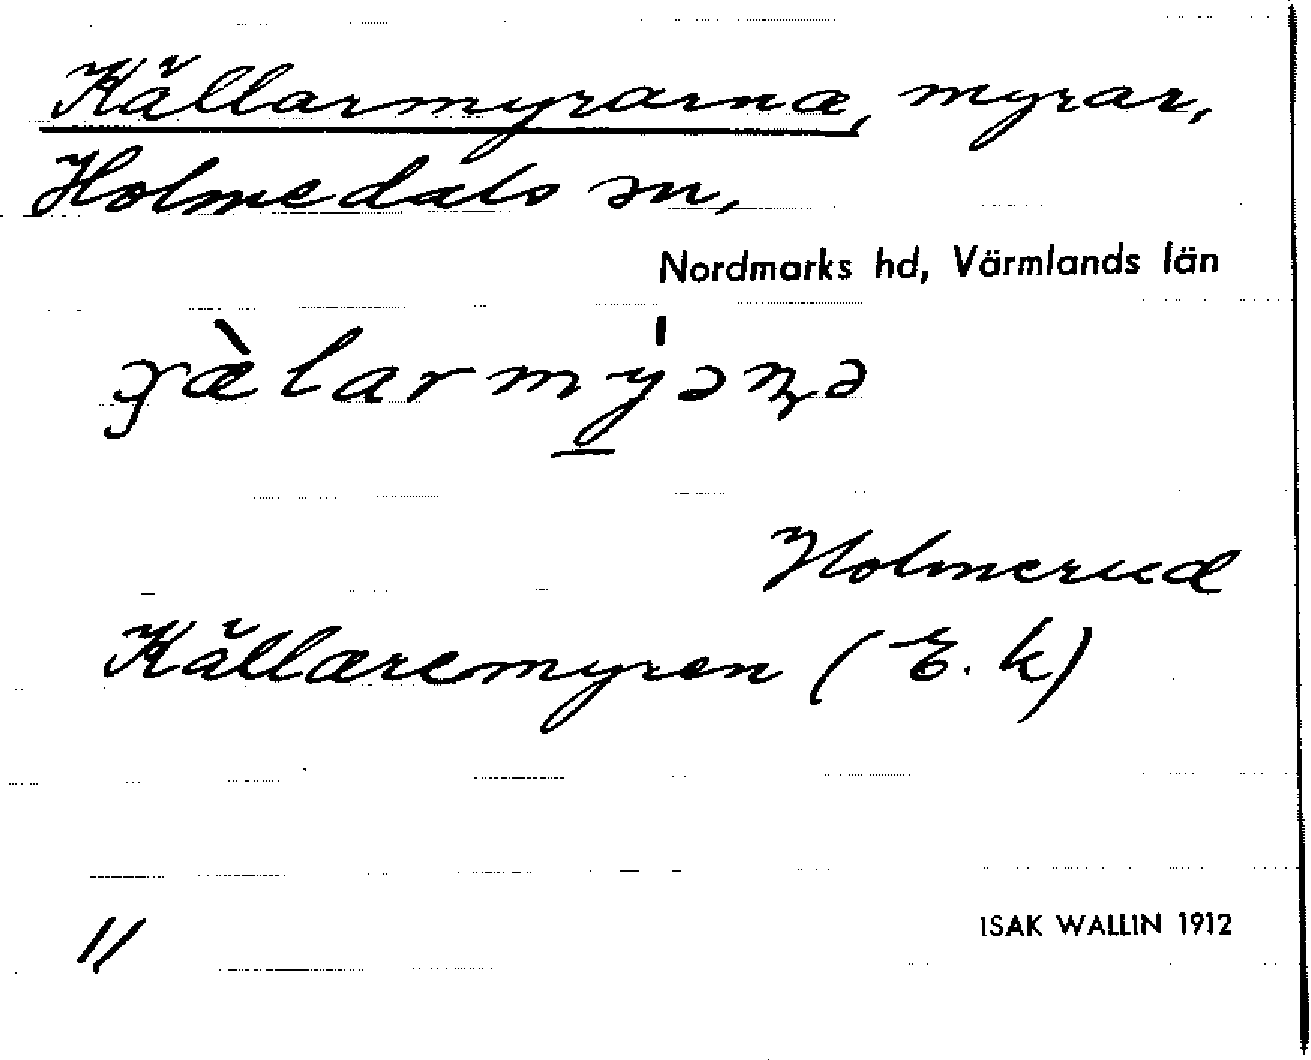 Källarmyrarna, myrar,
Holmedals sn,
Nordmarks hd, Värmlands län
Holmerud
Källaremyren (E. k)
ISAK WALLIN 1912